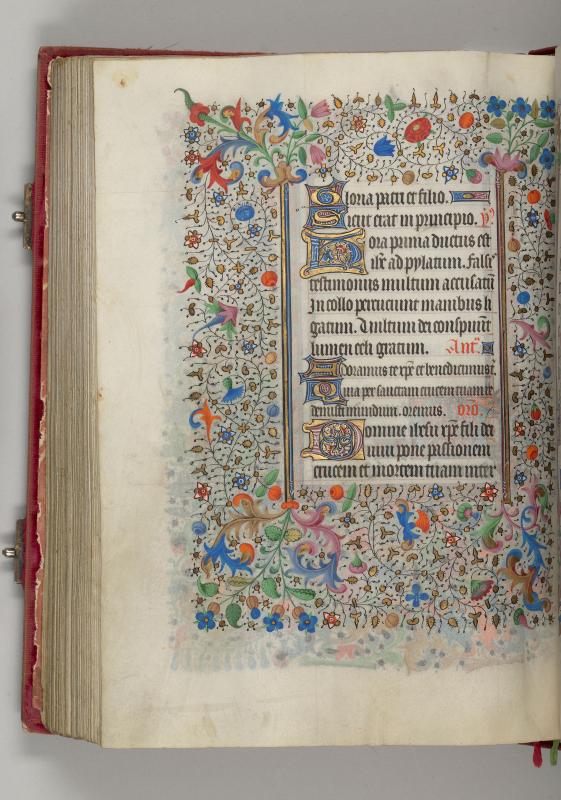 Gloria patri et filio.
Sicut erat in principio. ỿ
Hora prima ductus est
ihs̄ ad pylatum. Falsis
testimoniis multum accusatū
In collo percutiunt manibus li
gatum. Vultum dei conspuūt
lumen celi gratum. Anā
Adoramus te xp̄e et benedicimus t.
Quia per sanctam crucem tuam re
demisti mundum. oremus. orō
Domine ihesu xp̄e fili dei
viui pone passionem
crucem et mortem tuam inter